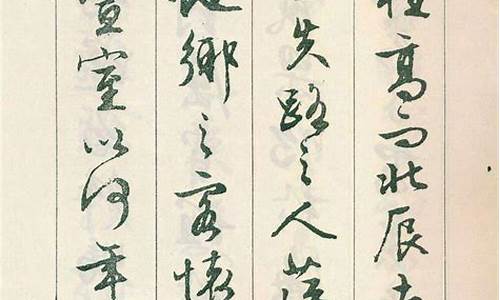 柱高而北辰遠
失路之人萍
他鄉之客懷
宣室以何年